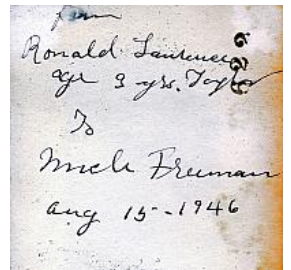 from
Ronald Laurence
age 3 yrs. Taylor
To
Uncle Freeman
Aug 15 - 1946